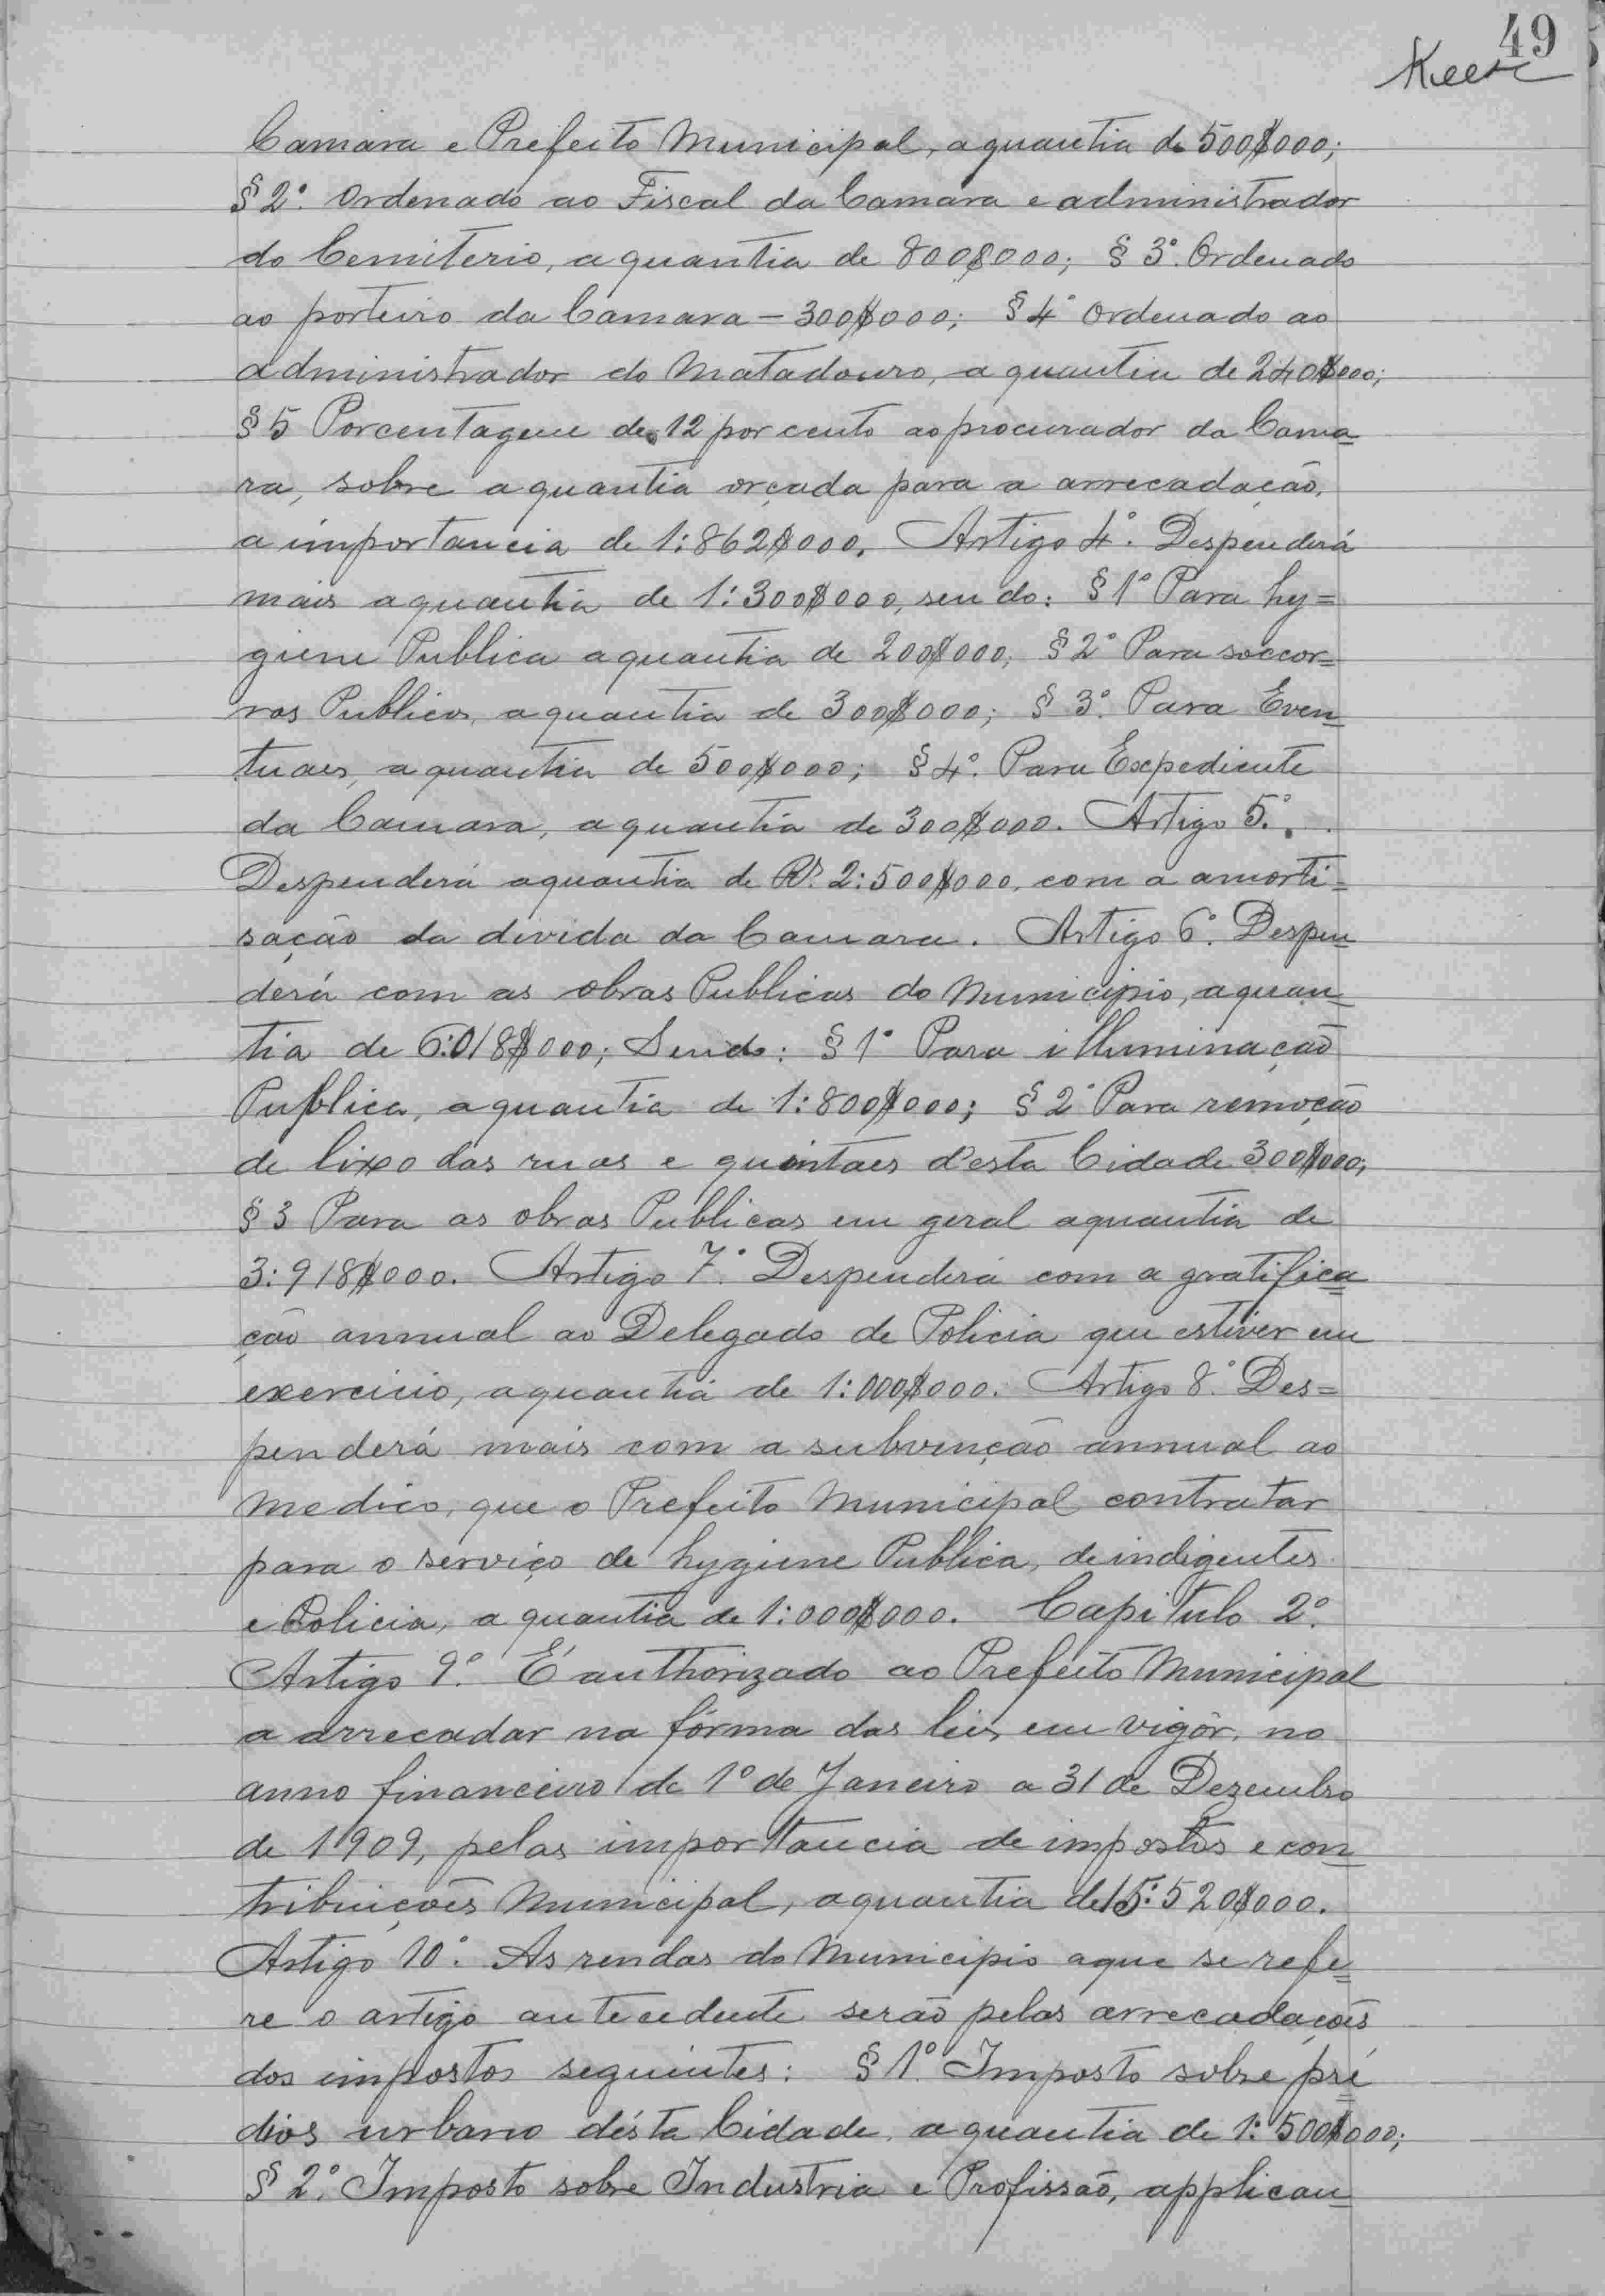 49
Camara e Prefeito Municipal, a quantia de 500$000;
§ 2º. Ordenado ao Fiscal da Camara e administrador
do Cemiterio, a quantia de 800$000; § 3º. Ordenado
ao porteiro da Camara – 300$000; § 4º Ordenado ao
administrador do Matadouro, a quantia de 240$000;
§ 5 Porcentagem de 12 por cento ao procurador da Cama=
ra, sobre a quantia orçada para a arrecadação,
a importancia de 1:862$000. Artigo 4º. Despenderá
mais a quantia de 1:300$000, sendo: § 1º Para hy=
giene Publica a quantia de 200$000; § 2º Para soccor=
ros Publicos, a quantia de 300$000; § 3º. Para Even=
tuaes, a quantia de 500$000; § 4º. Para Expediente
da Camara, a quantia de 300$000. Artigo 5º.
Despenderá a quantia de Rs. 2:500$000, com a amorti=
sação da divida da Camara. Artigo 6º. Despen=
derá com as obras Publicas do Municipio, a quan=
tia de 6:018$000; Sendo: § 1º Para illuminação
Publica, a quantia de 1:800$000; § 2º Para remoção
de lixo das ruas e quintaes d'esta Cidade 300$000;
§ 3 Para as obras Publicas em geral a quantia de
3:918$000. Artigo 7º. Despenderá com a gratifica=
ção annual ao Delegado de Policia que estiver em
exercicio, a quantia de 1:000$000. Artigo 8º. Des=
penderá mais com a subvenção annual ao
medico, que o Prefeito Municipal contratar
para o serviço de hygiene Publica, de indigentes
e Policia, a quantia de 1:000$000. Capitulo 2º.
Artigo 9º. É authorizado ao Prefeito Municipal
a arrecadar na fórma das leis em vigôr, no
anno financeiro de 1º de Janeiro a 31 de Dezembro
de 1909, pelas importancia de impostos e con=
tribuições Municipal, a quantia de 15:520$000.
Artigo 10º. As rendas do Municipio a que se refe=
re o artigo antecedente serão pelas arrecadações
dos impostos seguintes: § 1º. Imposto sobre pré=
dios urbano désta Cidade, a quantia de 1:500$000;
§ 2º. Imposto sobre Industria e Profissão, applican=